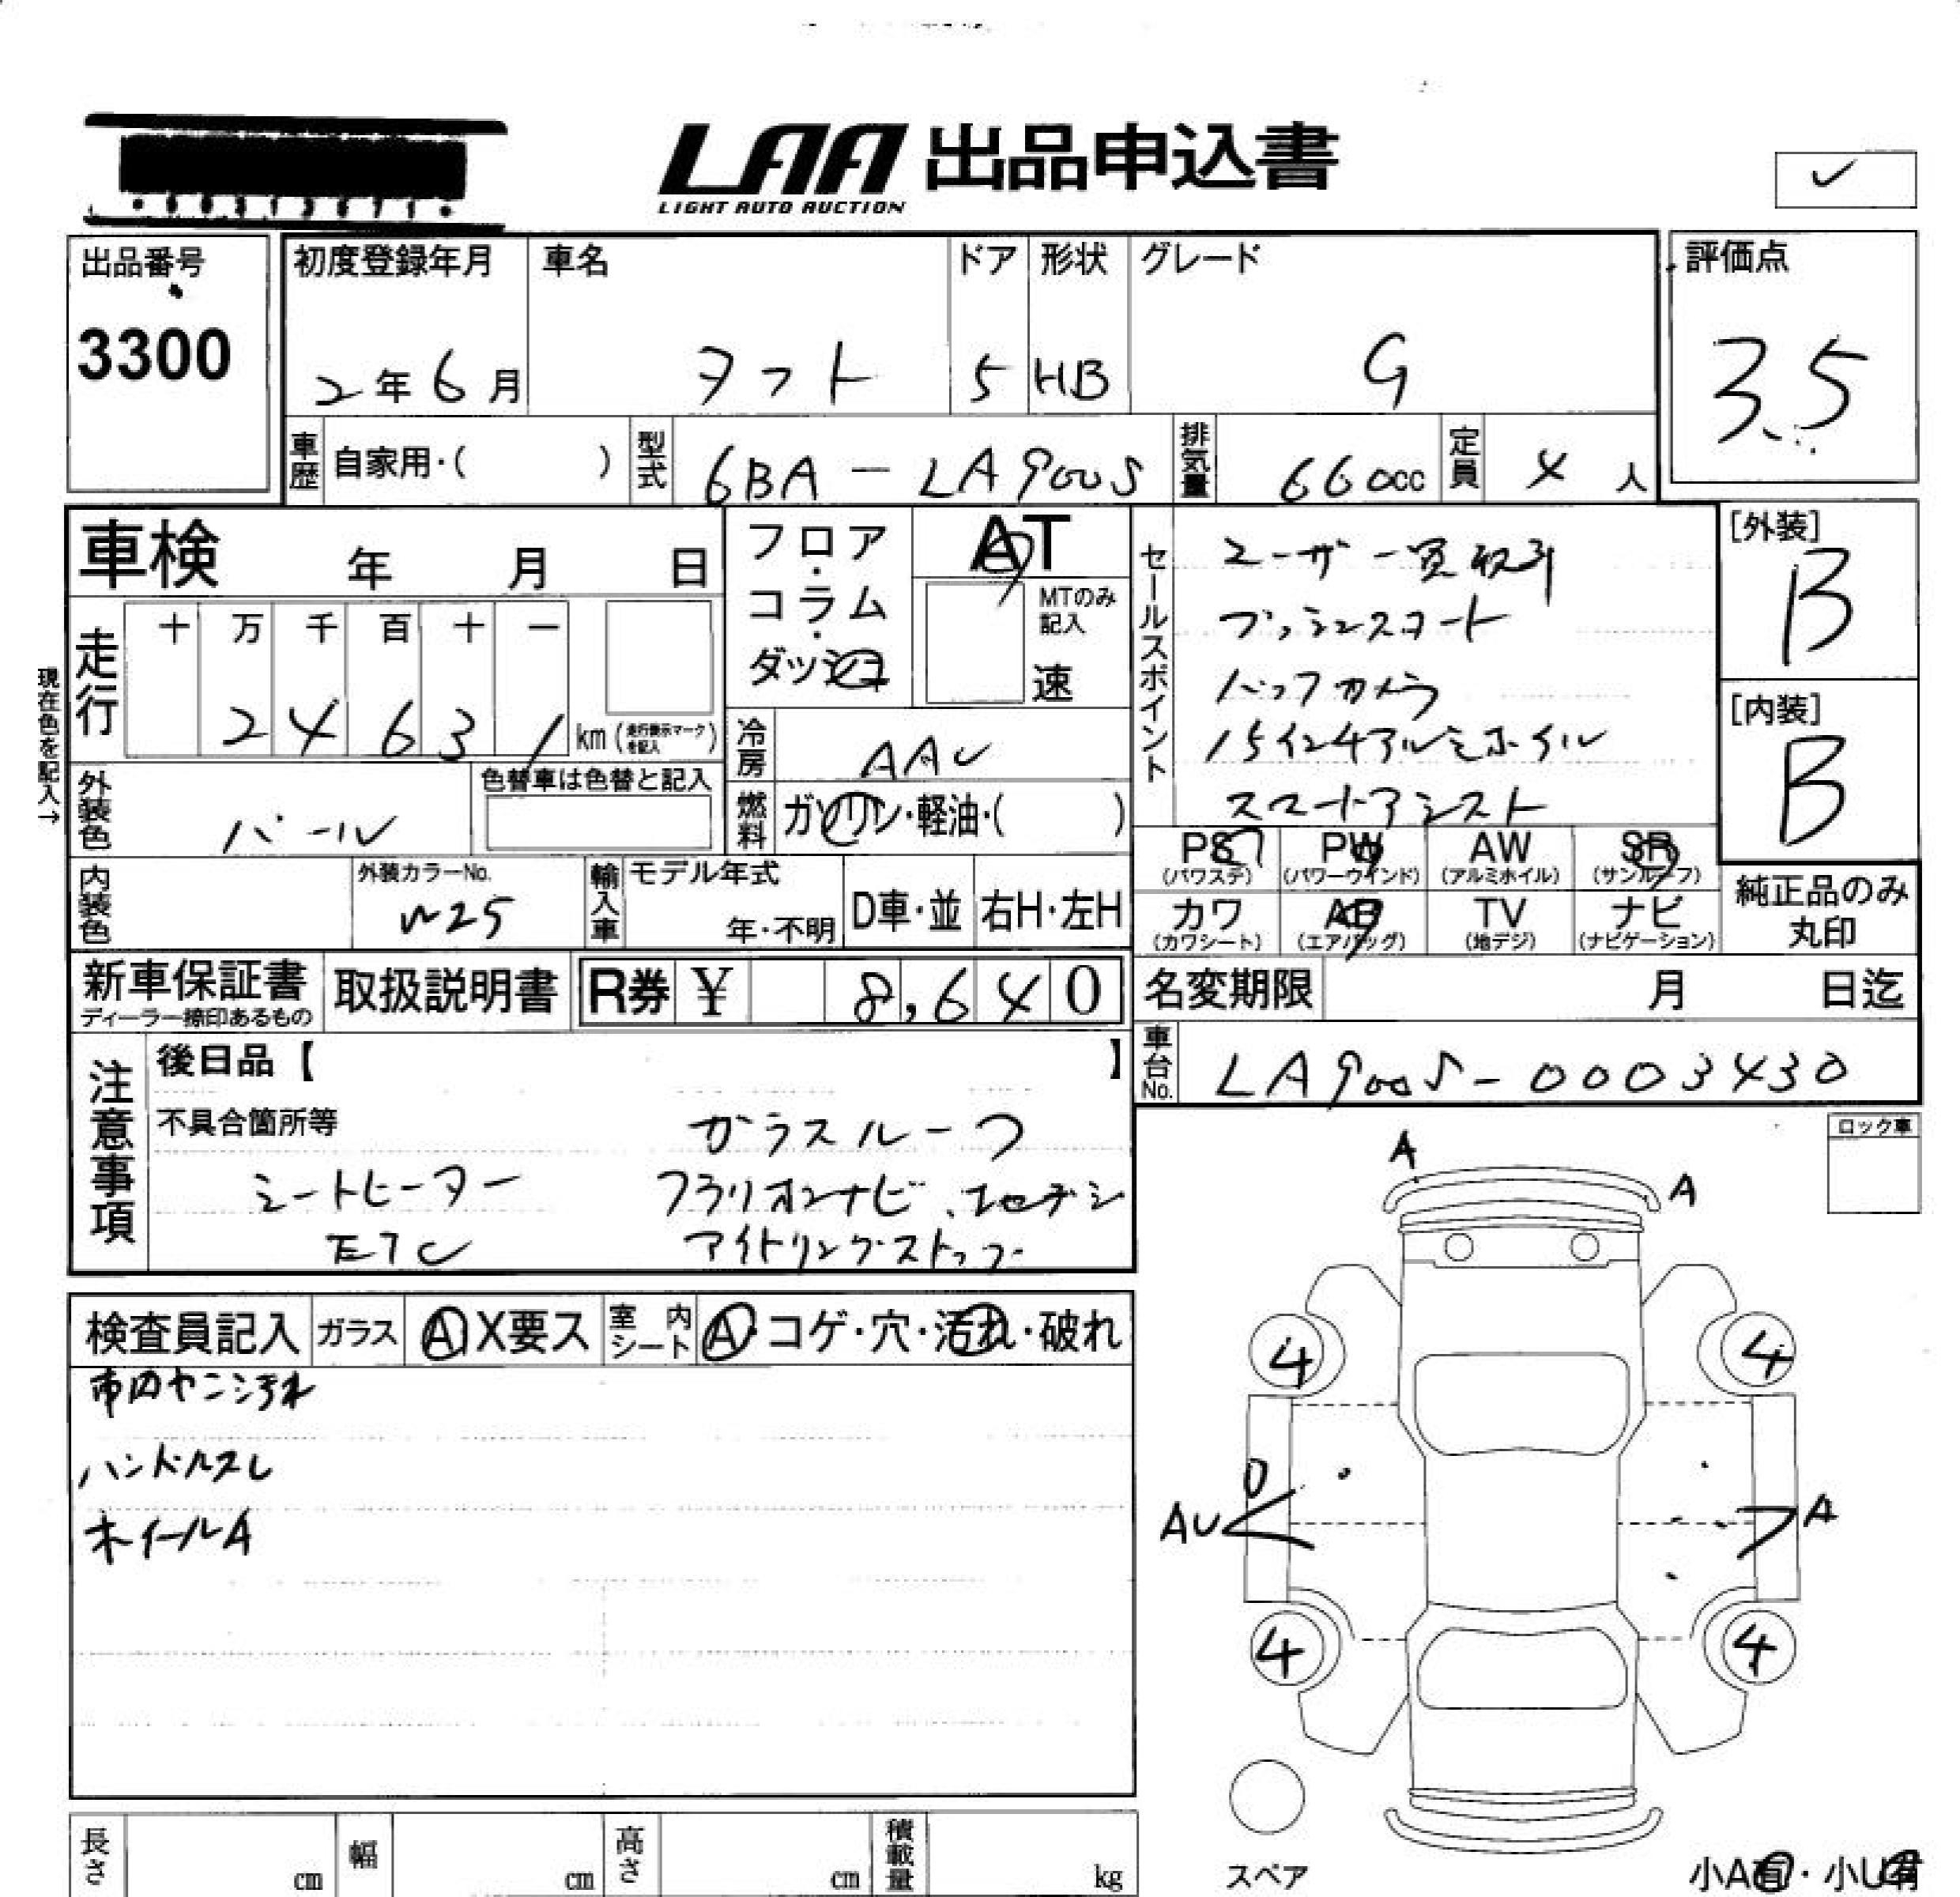 LAA 出品申込書
LIGHT AUTO AUCTION
✓
出品番号
3300
初度登録年月
2年6月
車名
タフト
ドア
5
形状
HB
グレード
G
評価点
3.5
車歴 自家用・( )
型式 6BA-LA900S
排気量 660cc
定員 4人
車検 年 月 日
フロア・コラム・ダッシュ
AT
MTのみ記入
速
セールスポイント
ユーザー買取引
プッシュスタート
バックカメラ
15インチアルミホイル
スマートアシスト
[外装]
B
[内装]
B
現在色を記入→
走行 十 万 千 百 十 一
24631km(走行表示マークを記入)
冷房 AAC
燃料 ガソリン・軽油・( )
外装色 パール
色替車は色替と記入
PS (パワステ) PW (パワーウインド) AW (アルミホイル) SR (サンルーフ)
カワ (カワシート) AB (エアバッグ) TV (地デジ) ナビ (ナビゲーション)
純正品のみ丸印
内装色
外装カラーNo.
W25
輸入車 モデル年式
年・不明
D車・並
右H・左H
新車保証書
ディーラー捺印あるもの
取扱説明書
R券 ¥ 8,640
名変期限 月 日迄
車台No. LA900S-0003430
注意事項
後日品【 】
不具合箇所等
ガラスルーフ
シートヒーター
フラリオンナビ、フルセグデジ
ETC
アイドリングストップ
ロック車
検査員記入 ガラス A X要ス 室内シート A・コゲ・穴・汚れ・破れ
車内ヤニ汚れ
ハンドルスレ
ホイールA
A
A
4
4
U
AU
A
4
4
スペア
小A有・小U有
長さ cm 幅 cm 高さ cm 積載量 kg